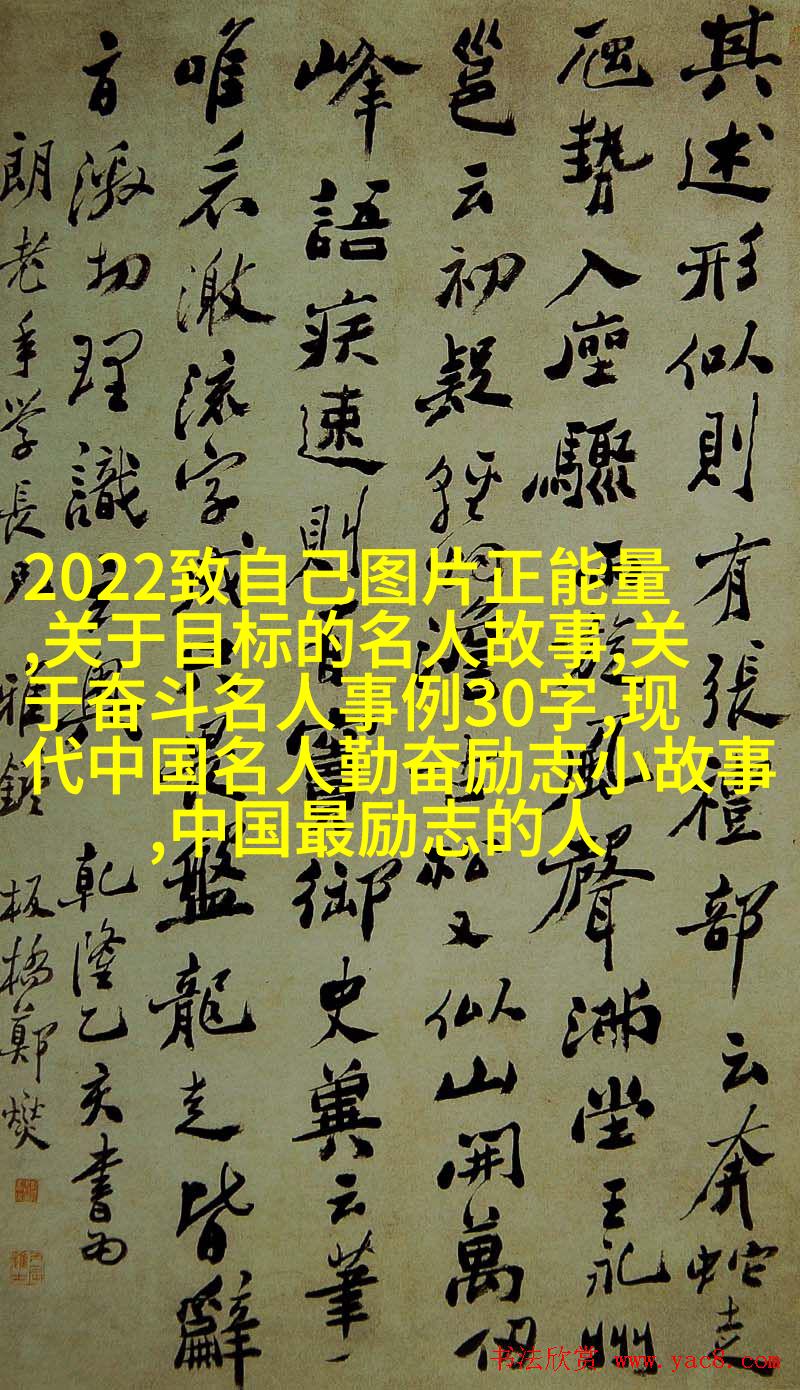 其述形似則有張禮部云奔蛇走
虺勢入座驟雨旋風聲滿堂王永州
邕云初疑輕煙澹古松又似山開萬仞
峰語疾速則有竇御史冀云筆一
唯看激流字成只畏盤龍走皆辭
旨激切理識玄奧 乾隆乙亥書為
朗老年學長兄 雅鑒 板橋鄭燮
2022致自己图片正能量
,关于目标的名人故事,关
于奋斗名人事例30字,现
代中国名人勤奋励志小故事
,中国最励志的人
书法欣赏 www.yac8.com